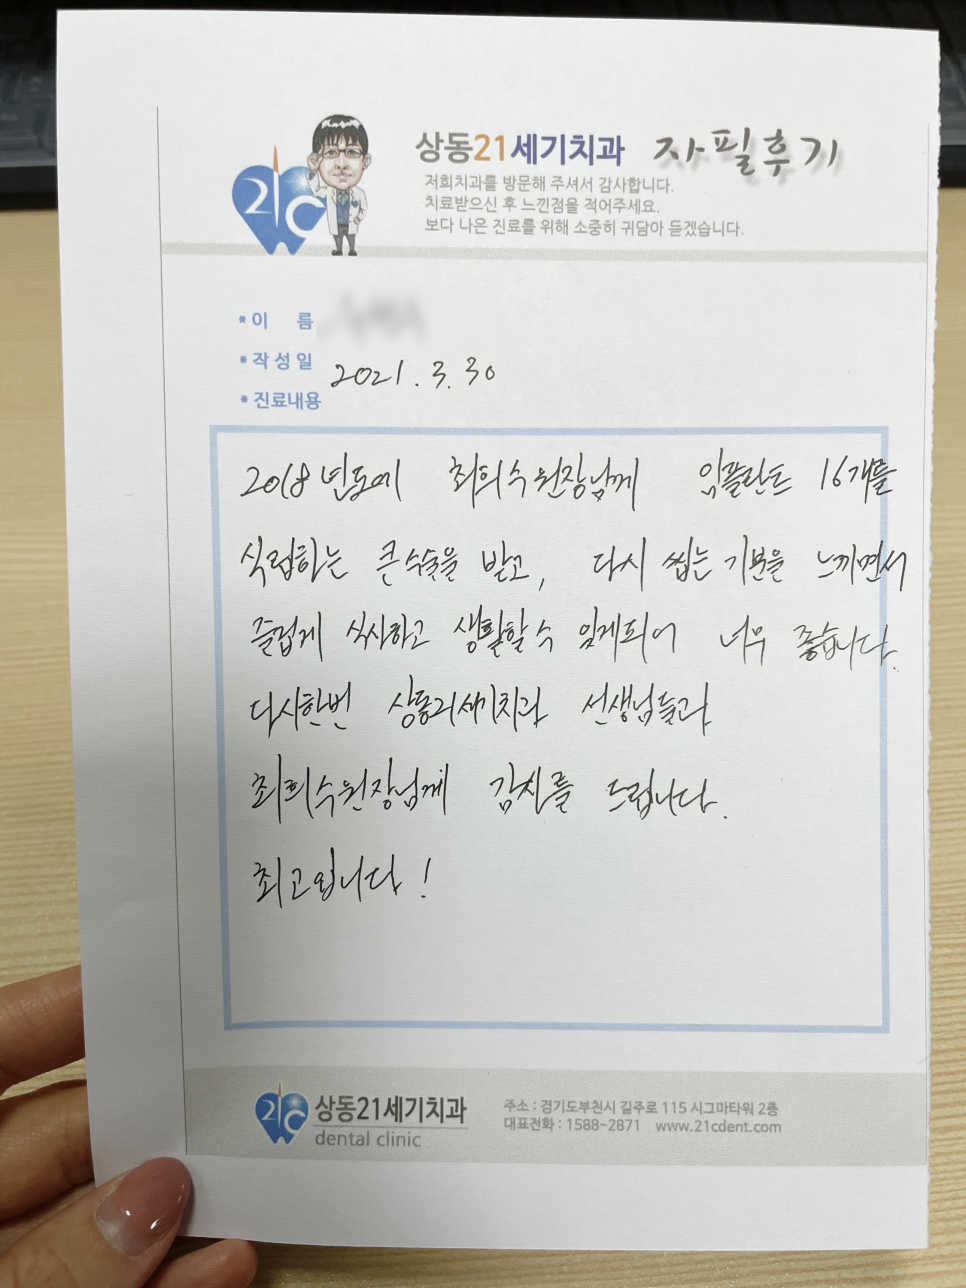 21C
상동21세기치과 자필후기
저희치과를 방문해 주셔서 감사합니다.
치료받으신 후 느낀점을 적어주세요.
보다 나은 진료를 위해 소중히 귀담아 듣겠습니다.
* 이 름
* 작성일 2021. 3. 30
* 진료내용
2018년도에 최희수원장님께 임플란트 16개를
식립하는 큰수술을 받고, 다시 씹는 기분을 느끼면서
즐겁게 식사하고 생활할수 있게되어 너무 좋습니다.
다시한번 상동21세기치과 선생님들과
최희수원장님께 감사를 드립니다.
최고입니다!
21C 상동21세기치과
dental clinic
주소 : 경기도부천시 길주로 115 시그마타워 2층
대표전화 : 1588-2871 www.21cdent.com